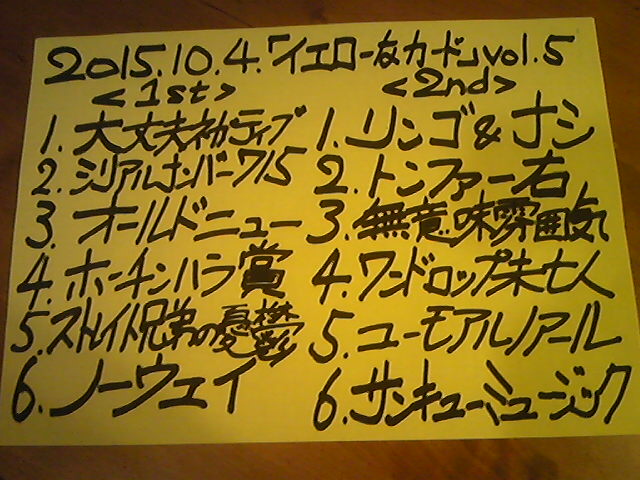 2015.10.4.「イエローなカード」vol.5
<1st>
1. 大丈夫ネガティブ
2. シリアルナンバー715
3. オールドニュー
4. ホーチンハラ賞
5. ストレイト兄弟の憂鬱
6. ノーウェイ
<2nd>
1. リンゴ&ナシ
2. トンファー右
3. 無意味雰囲気
4. ワンドロップ未亡人
5. ユーモアルノアール
6. サンキューミュージック